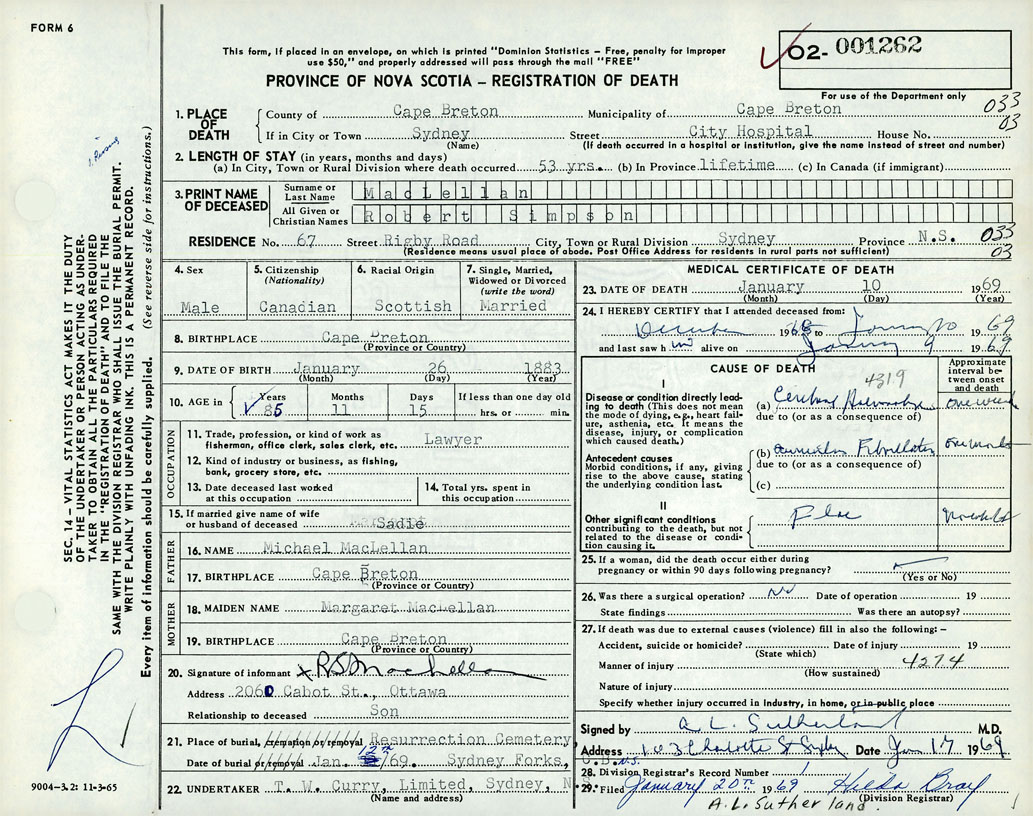 FORM 6
O2- 001262
This form, if placed in an envelope, on which is printed "Dominion Statistics – Free, penalty for improper
use $50," and properly addressed will pass through the mail "FREE"
PROVINCE OF NOVA SCOTIA – REGISTRATION OF DEATH
For use of the Department only
033
03
1. PLACE OF DEATH
County of Cape Breton Municipality of Cape Breton
If in City or Town Sydney Street City Hospital House No.
(Name) (If death occurred in a hospital or institution, give the name instead of street and number)
2. LENGTH OF STAY (in years, months and days)
(a) In City, Town or Rural Division where death occurred 53 yrs. (b) In Province lifetime (c) In Canada (if immigrant)
3. PRINT NAME OF DECEASED
Surname or Last Name MacLellan
All Given or Christian Names Robert Simpson
RESIDENCE No. 67 Street Rigby Road City, Town or Rural Division Sydney Province N.S. 033
(Residence means usual place of abode. Post Office Address for residents in rural parts not sufficient) 03
4. Sex
Male
5. Citizenship
(Nationality)
Canadian
6. Racial Origin
Scottish
7. Single, Married,
Widowed or Divorced
(write the word)
Married
8. BIRTHPLACE Cape Breton
(Province or Country)
9. DATE OF BIRTH January 26 1883
(Month) (Day) (Year)
10. AGE in Years 85 Months 11 Days 15 If less than one day old
hrs. or min.
OCCUPATION
11. Trade, profession, or kind of work as
fisherman, office clerk, sales clerk, etc. Lawyer
12. Kind of industry or business, as fishing,
bank, grocery store, etc.
13. Date deceased last worked
at this occupation
14. Total yrs. spent in
this occupation
15. If married give name of wife
or husband of deceased Sadie
FATHER
16. NAME Michael MacLellan
17. BIRTHPLACE Cape Breton
(Province or Country)
MOTHER
18. MAIDEN NAME Margaret MacLellan
19. BIRTHPLACE Cape Breton
(Province or Country)
20. Signature of informant x RS MacLellan
Address 2060 Cabot St., Ottawa
Relationship to deceased Son
21. Place of burial, cremation or removal Resurrection Cemetery
Date of burial or removal Jan. 12th /69. Sydney Forks,
C.B. N.S.
22. UNDERTAKER T. W. Curry, Limited, Sydney, N.S.
(Name and address)
MEDICAL CERTIFICATE OF DEATH
23. DATE OF DEATH January 10 1969
(Month) (Day) (Year)
24. I HEREBY CERTIFY that I attended deceased from:
December 1968 to January 10 1969
and last saw him alive on January 9 1969
CAUSE OF DEATH
Approximate
interval be-
tween onset
and death
4319
I
Disease or condition directly lead-
ing to death (This does not mean
the mode of dying, e.g., heart fail-
ure, asthenia, etc. It means the
disease, injury, or complication
which caused death.)
(a) Cerebral Hemorrhage one week
due to (or as a consequence of)
Antecedent causes
Morbid conditions, if any, giving
rise to the above cause, stating
the underlying condition last.
(b) Auricular Fibrillation one month
due to (or as a consequence of)
(c)
II
Other significant conditions
contributing to the death, but not
related to the disease or condi-
tion causing it.
25. If a woman, did the death occur either during
pregnancy or within 90 days following pregnancy?
(Yes or No)
26. Was there a surgical operation? No Date of operation 19
State findings Was there an autopsy?
27. If death was due to external causes (violence) fill in also the following: –
Accident, suicide or homicide? Date of injury 19
(State which)
Manner of injury 4274
(How sustained)
Nature of injury
Specify whether injury occurred in industry, in home, or in public place
Signed by A. L. Sutherland M.D.
Address 103 Charlotte St Sydney Date Jan 17 1969
28. Division Registrar's Record Number 1
29. Filed January 20th 1969 Hilda Bray
A.L. Sutherland (Division Registrar)
SEC. 14 – VITAL STATISTICS ACT MAKES IT THE DUTY
OF THE UNDERTAKER OR PERSON ACTING AS UNDER-
TAKER TO OBTAIN ALL THE PARTICULARS REQUIRED
IN THE "REGISTRATION OF DEATH" AND TO FILE THE
SAME WITH THE DIVISION REGISTRAR WHO SHALL ISSUE THE BURIAL PERMIT.
WRITE PLAINLY WITH UNFADING INK. THIS IS A PERMANENT RECORD.
Every item of information should be carefully supplied. (See reverse side for instructions.)
9004-3.2: 11-3-65